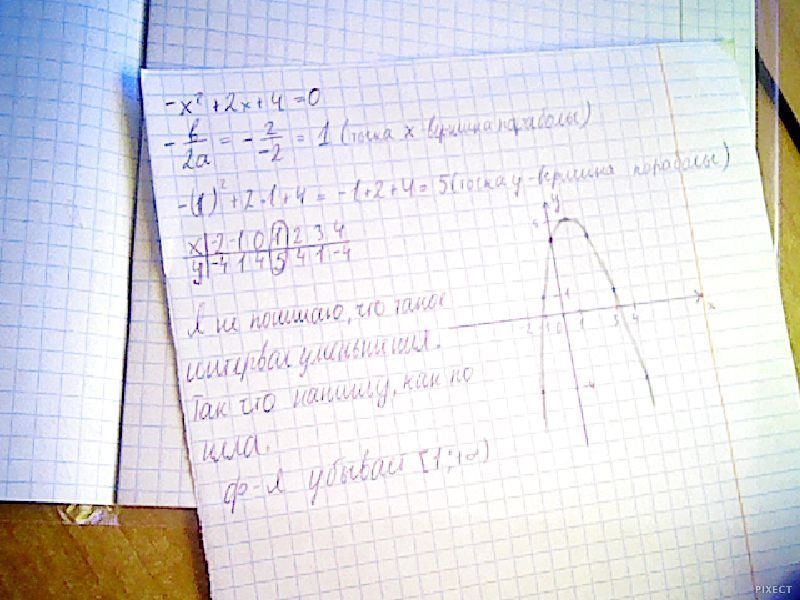 -x² + 2x + 4 = 0
- b/2a = - 2/-2 = 1 (точка x - вершина параболы)
-(1)² + 2·1 + 4 = -1 + 2 + 4 = 5 (точка y - вершина параболы)
x -2 -1 0 1 2 3 4
y -4 1 4 5 4 1 -4
Я не понимаю, что такое
интервал уменьшения.
Так что напишу, как по
ф-я убывает [1; +∞)
y
5
1
-2 -1 0 1 3 4
x
-4
PIXECT